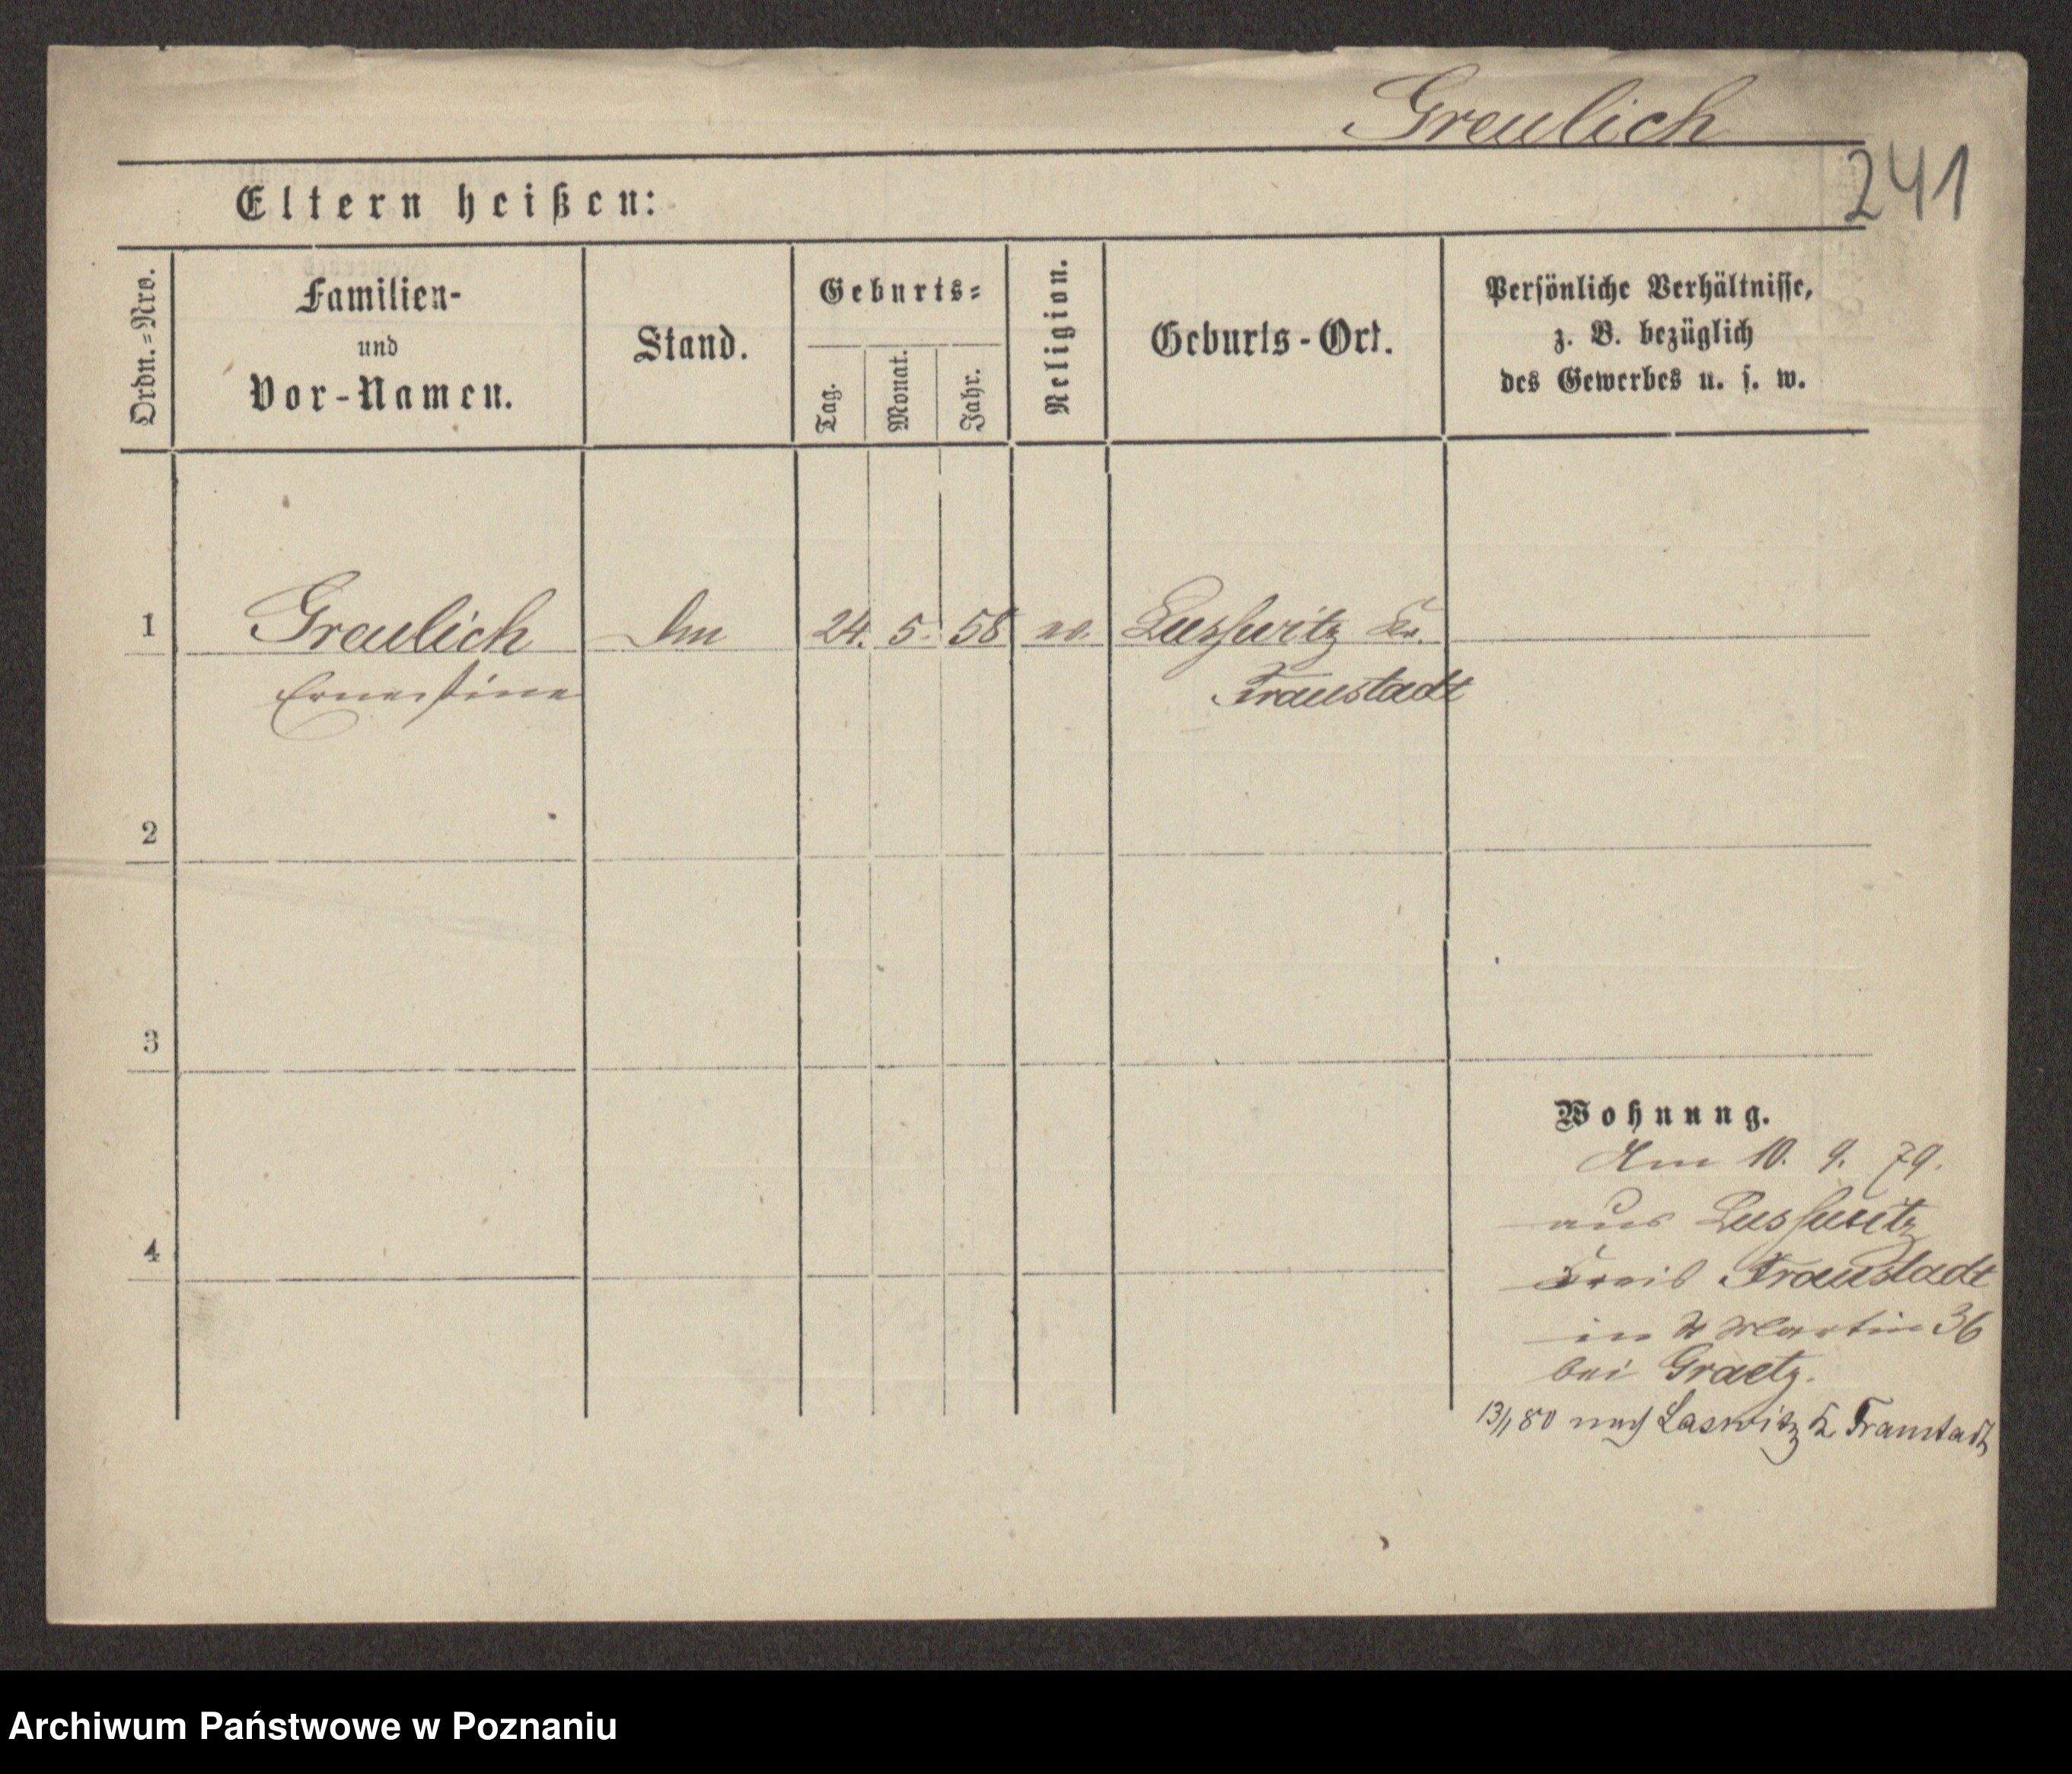 Greulich
241
Eltern heißen:
Ordn.=Nro.
Familien-
und
Vor-Namen.
Stand.
Geburts=
Tag.
Monat.
Jahr.
Religion.
Geburts-Ort.
Persönliche Verhältnisse,
z. B. bezüglich
des Gewerbes u. s. w.
1 Greulich 24. 5. 58 Kr.
Ernestine Fraustadt
2
3
Wohnung.
Am 10. 9. 79.
aus
4
Kreis Fraustadt
in St Martin 36
bei Graetz.
13/1 80 nach Laswitz K. Fraustadt
Archiwum Państwowe w Poznaniu